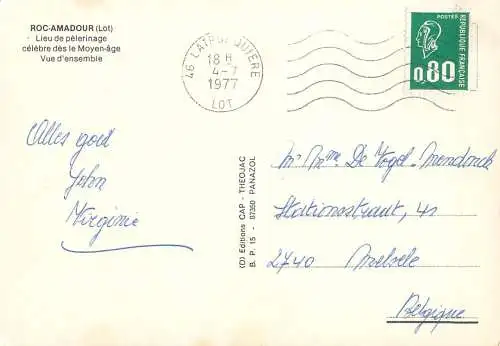 ROC-AMADOUR (Lot)
Lieu de pèlerinage
célèbre dès le Moyen-âge
Vue d'ensemble
46 LATRONQUIÈRE
18 H
4-7
1977
LOT
POSTES
RÉPUBLIQUE FRANÇAISE
0,80
Alles goed
John
Virginie
(D) Editions CAP - THEOJAC
B. P. 15 - 87350 PANAZOL
Mr Mme De Vogel-Mendonck
Stationsstraat, 41
2740 Melsele
Belgique